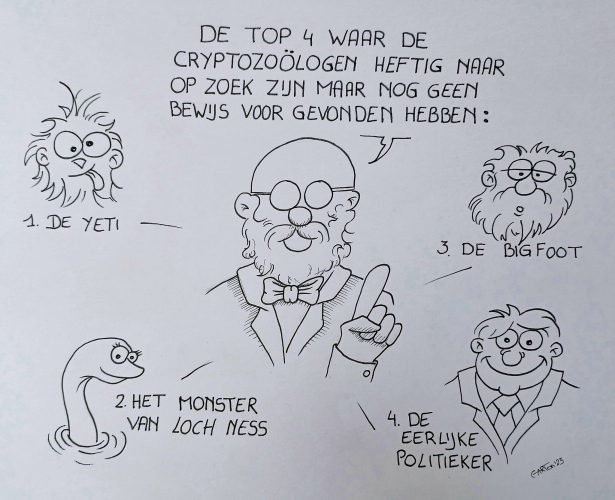 DE TOP 4 WAAR DE
CRYPTOZOÖLOGEN HEFTIG NAAR
OP ZOEK ZIJN MAAR NOG GEEN
BEWIJS VOOR GEVONDEN HEBBEN:
1. DE YETI
2. HET MONSTER
VAN LOCH NESS
3. DE BIGFOOT
4. DE
EERLIJKE
POLITIEKER